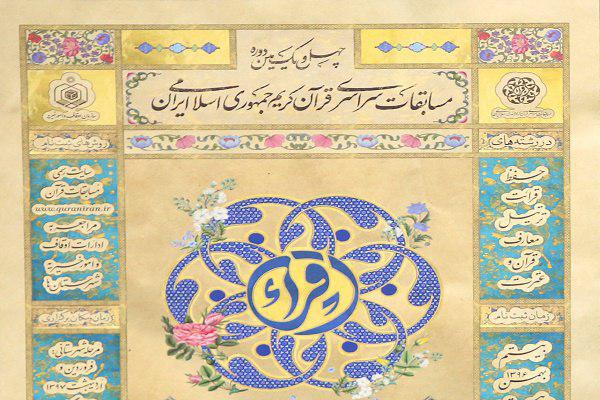 چهل و یکمین دوره
مسابقات سراسری قرآن کریم جمهوری اسلامی ایران
در رشته های
حفظ
قرائت
ترتیل
معارف
قرآن و
عترت
زمان ثبت نام
بیستم
بهمن
۱۳۹۶
اقراء
روش های ثبت نام
سایت رسمی
مسابقات قرآن
www.quraniran.ir
مراجعه به
ادارات اوقاف
و امور خیریه
شهرستان ها
زمان و مکان برگزاری
مرحله شهرستانی:
فروردین و
اردیبهشت ۱۳۹۷
سازمان اوقاف و امور خیریه